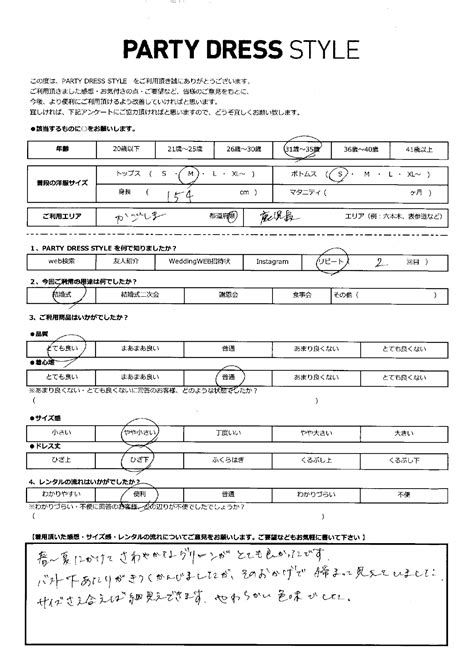 PARTY DRESS STYLE
この度は、PARTY DRESS STYLE をご利用頂き誠にありがとうございます。
ご利用頂きました感想・お気付きの点・ご要望など、皆様のご意見をもとに、
今後、より便利にご利用頂けるよう改善していければと思います。
宜しければ、下記アンケートにご協力頂ければと思いますので、どうぞ宜しくお願い致します。
●該当するものに○をお願いします。
年齢 20歳以下 21歳～25歳 26歳～30歳 31歳～35歳 36歳～40歳 41歳以上
普段の洋服サイズ トップス ( S ・ M ・ L ・ XL～ ) ボトムス ( S ・ M ・ L ・ XL～ )
身長 ( 154 cm ) マタニティ ( ヶ月 )
ご利用エリア かごしま 都道府県 鹿児島 エリア（例：六本木、表参道など）
1、PARTY DRESS STYLE を何で知りましたか？
web検索 友人紹介 WeddingWEB招待状 Instagram リピート ( 2 回目 )
2、今回ご利用の用途は何でしたか？
結婚式 結婚式二次会 謝恩会 食事会 その他 ( )
3、ご利用商品はいかがでしたか？
●品質
とても良い まあまあ良い 普通 あまり良くない とても良くない
●着心地
とても良い まあまあ良い 普通 あまり良くない とても良くない
※あまり良くない・とても良くないに回答のお客様、どのような状態でしたか？
( )
●サイズ感
小さい やや小さい 丁度いい やや大さい 大きい
●ドレス丈
ひざ上 ひざ下 ふくらはぎ くるぶし上 くるぶし下
4、レンタルの流れはいかがでしたか？
わかりやすい 便利 普通 わかりづらい 不便
※わかりづらい・不便に回答のお客様、どの辺りが不便でしたでしょうか？
( )
【着用頂いた感想・サイズ感・レンタルの流れについてご意見をお願いします。ご要望などもお気軽に書いて下さい】
春～夏にかけて さわやかなグリーンが とても良かったです。
バスト下あたりがきつくかんじましたが、そのおかげで 締まって見えていました。
サイズさえ合えば 細見えできます。やわらかい色味でした。